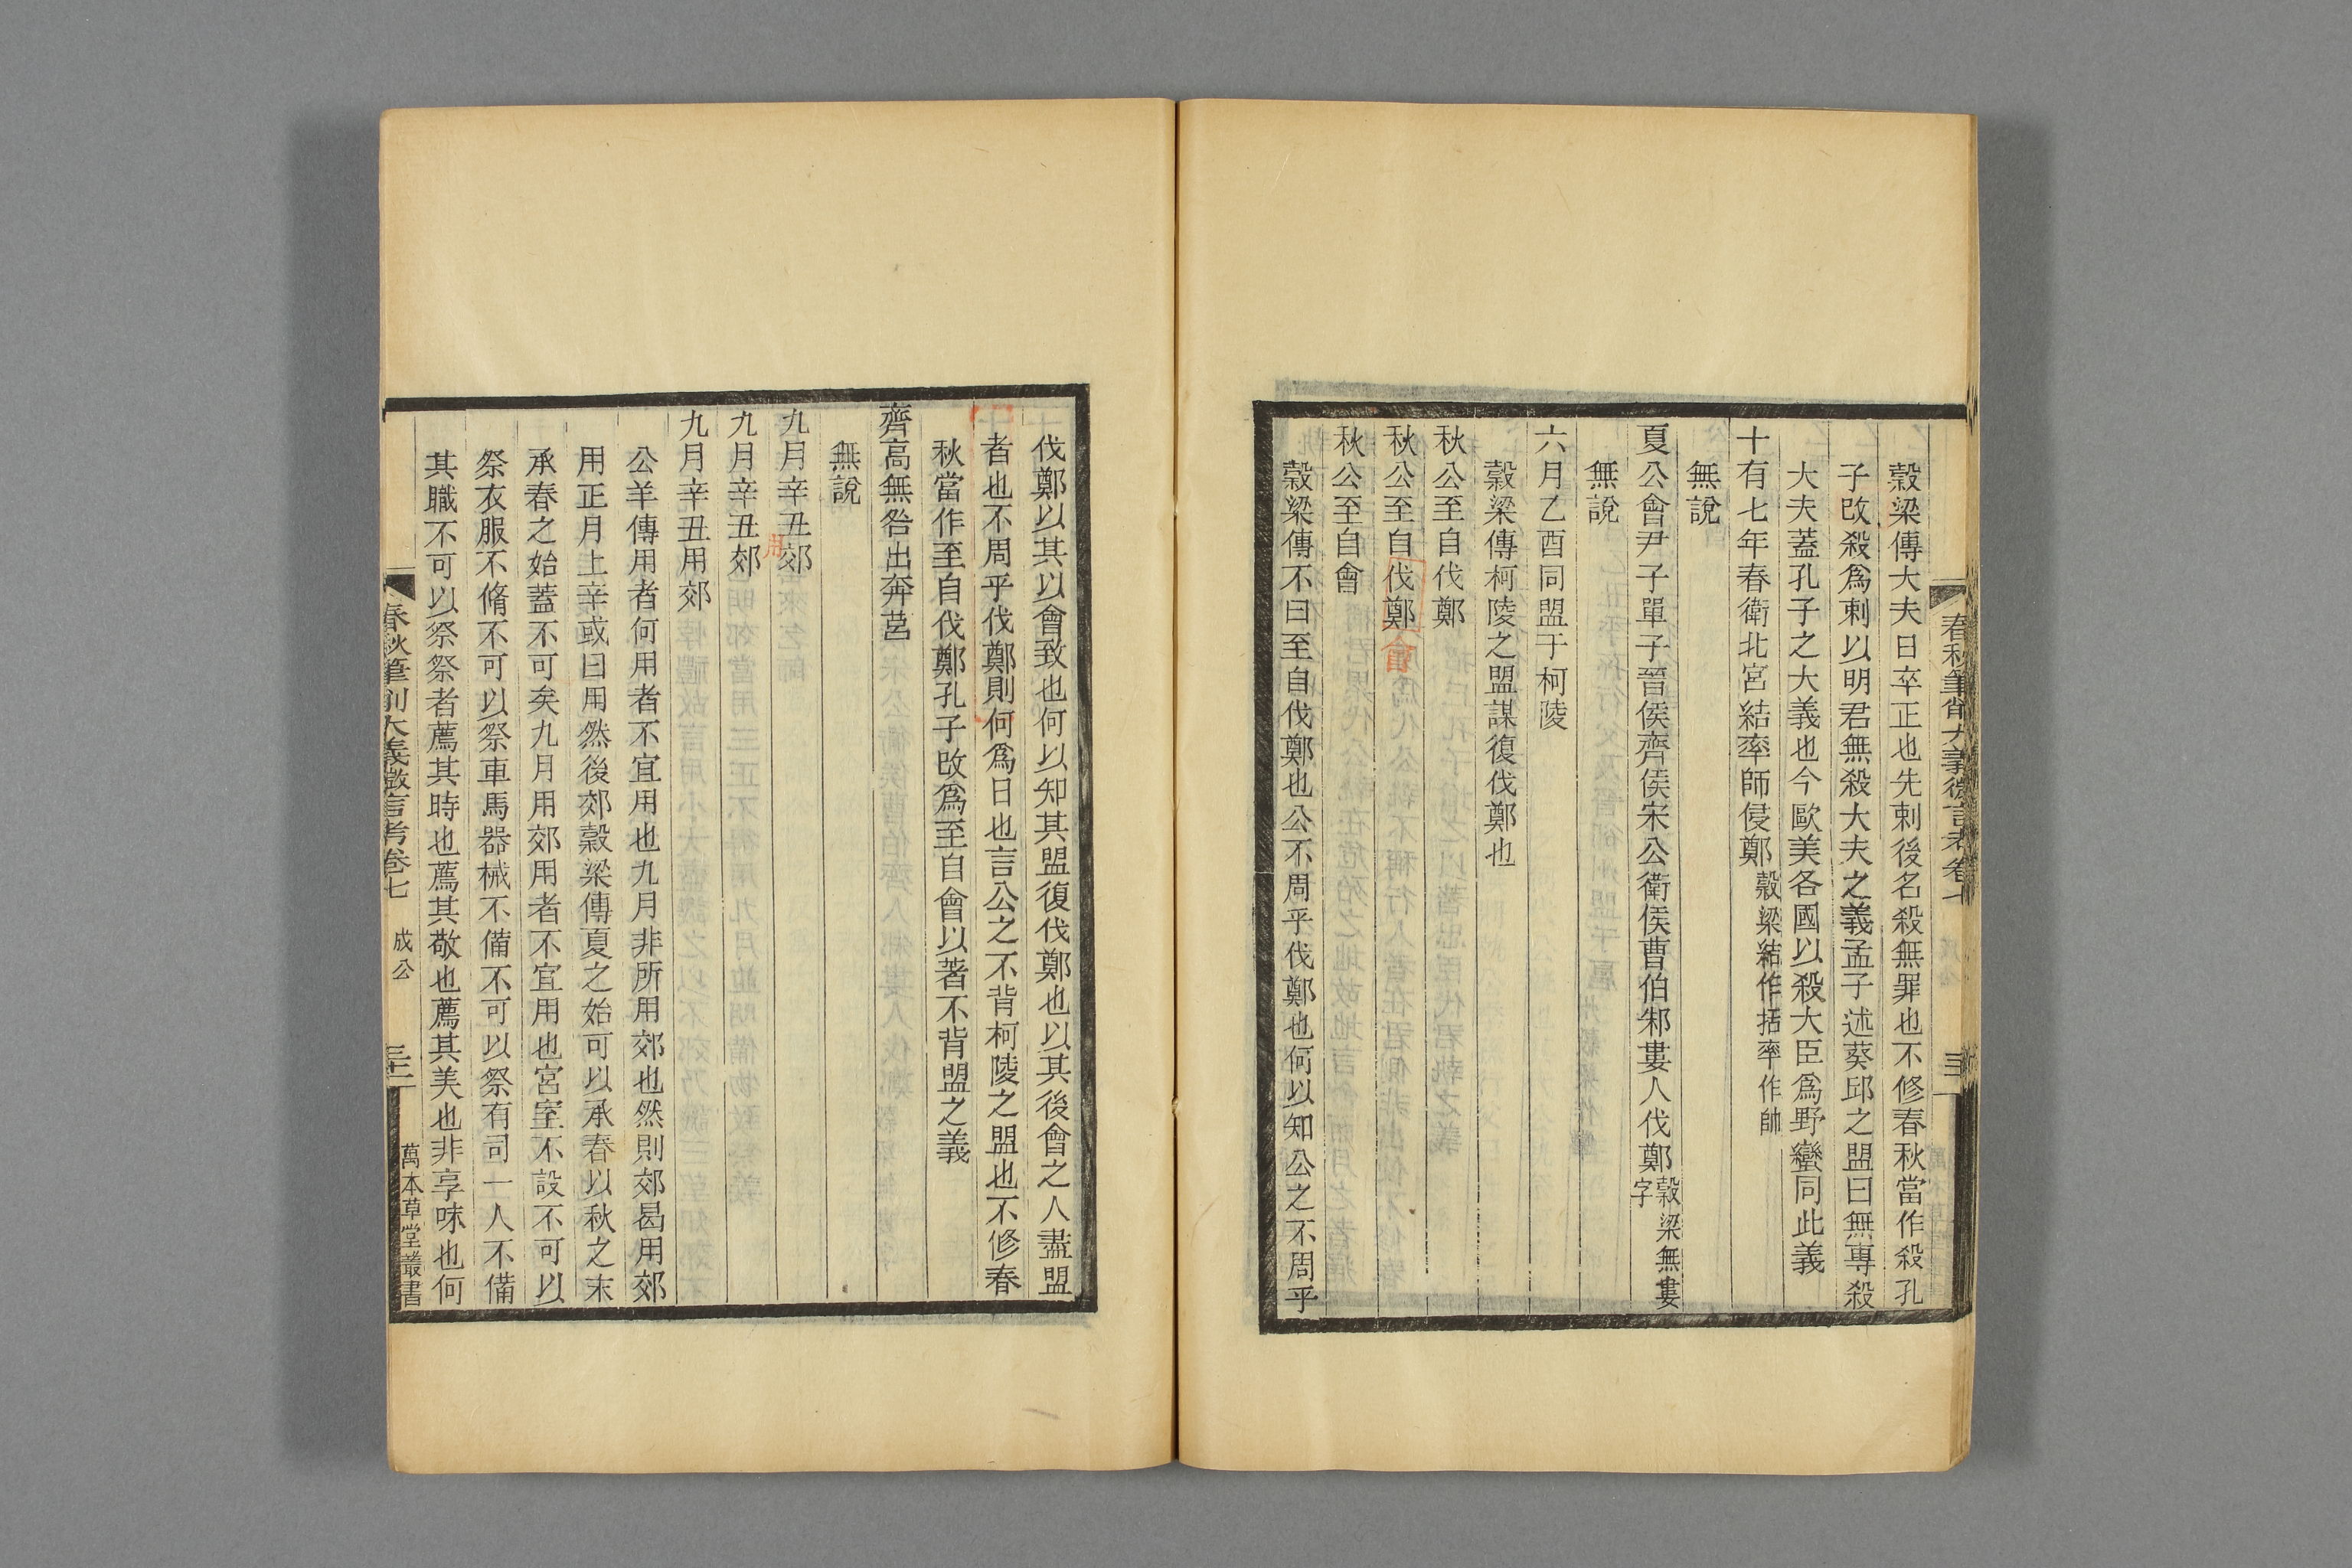 穀梁傳大夫日卒正也先刺後名殺無罪也不修春秋當作殺孔
子改殺爲刺以明君無殺大夫之義孟子述葵邱之盟曰無專殺
大夫蓋孔子之大義也今歐美各國以殺大臣爲野蠻同此義
十有七年春衛北宮結率師侵鄭穀梁結作括率作帥
無說
夏公會尹子單子晉侯齊侯宋公衛侯曹伯邾婁人伐鄭穀梁無婁字
無說
六月乙酉同盟于柯陵
穀梁傳柯陵之盟謀復伐鄭也
秋公至自伐鄭
秋公至自伐鄭會
秋公至自會
穀梁傳不曰至自伐鄭也公不周乎伐鄭也何以知公之不周乎
伐鄭以其以會致也何以知其盟復伐鄭也以其後會之人盡盟
者也不周乎伐鄭則何爲日也言公之不背柯陵之盟也不修春
秋當作至自伐鄭孔子改爲至自會以著不背盟之義
齊高無咎出奔莒
無說
九月辛丑郊
九月辛丑用郊
九月辛丑用郊
公羊傳用者何用者不宜用也九月非所用郊也然則郊曷用郊
用正月上辛或曰用然後郊穀梁傳夏之始可以承春以秋之末
承春之始蓋不可矣九月用郊用者不宜用也宮室不設不可以
祭衣服不脩不可以祭車馬器械不備不可以祭有司一人不備
其職不可以祭祭者薦其時也薦其敬也薦其美也非享味也何
春秋筆削大義微言考卷七 成公 三十二 萬木草堂叢書